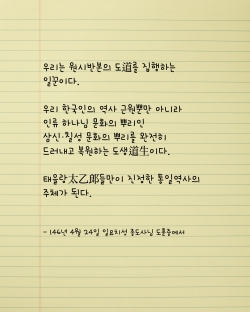 우리는 원시반본의 도道를 집행하는
일꾼이다.
우리 한국인의 역사 근원뿐만 아니라
인류 하나님 문화의 뿌리인
삼신·칠성 문화의 뿌리를 완전히
드러내고 복원하는 도생道生이다.
태을랑太乙郞들만이 진정한 통일역사의
주체가 된다.
- 146년 4월 24일 일요치성 종도사님 도훈中에서